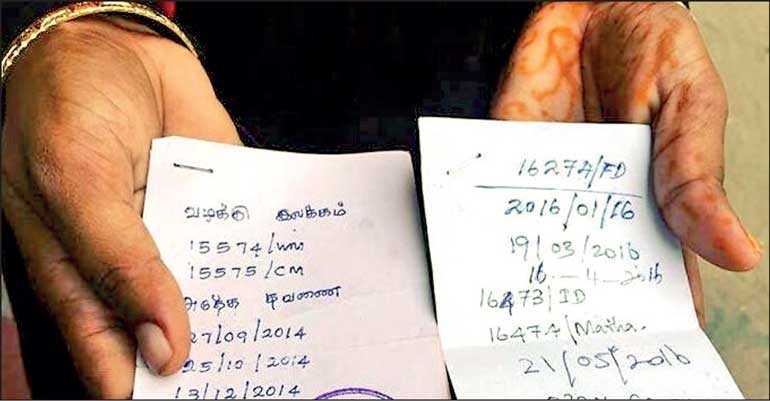 வழக்கு இலக்கம்
15574/மா
15575/CM
அடுத்த தவணை
27/09/2014
25/10/2014
13/12/2014
16274/FD
2016/01/16
19/03/2016
16-4-2016
16473/ID
16474/Matha.
21/05/2016